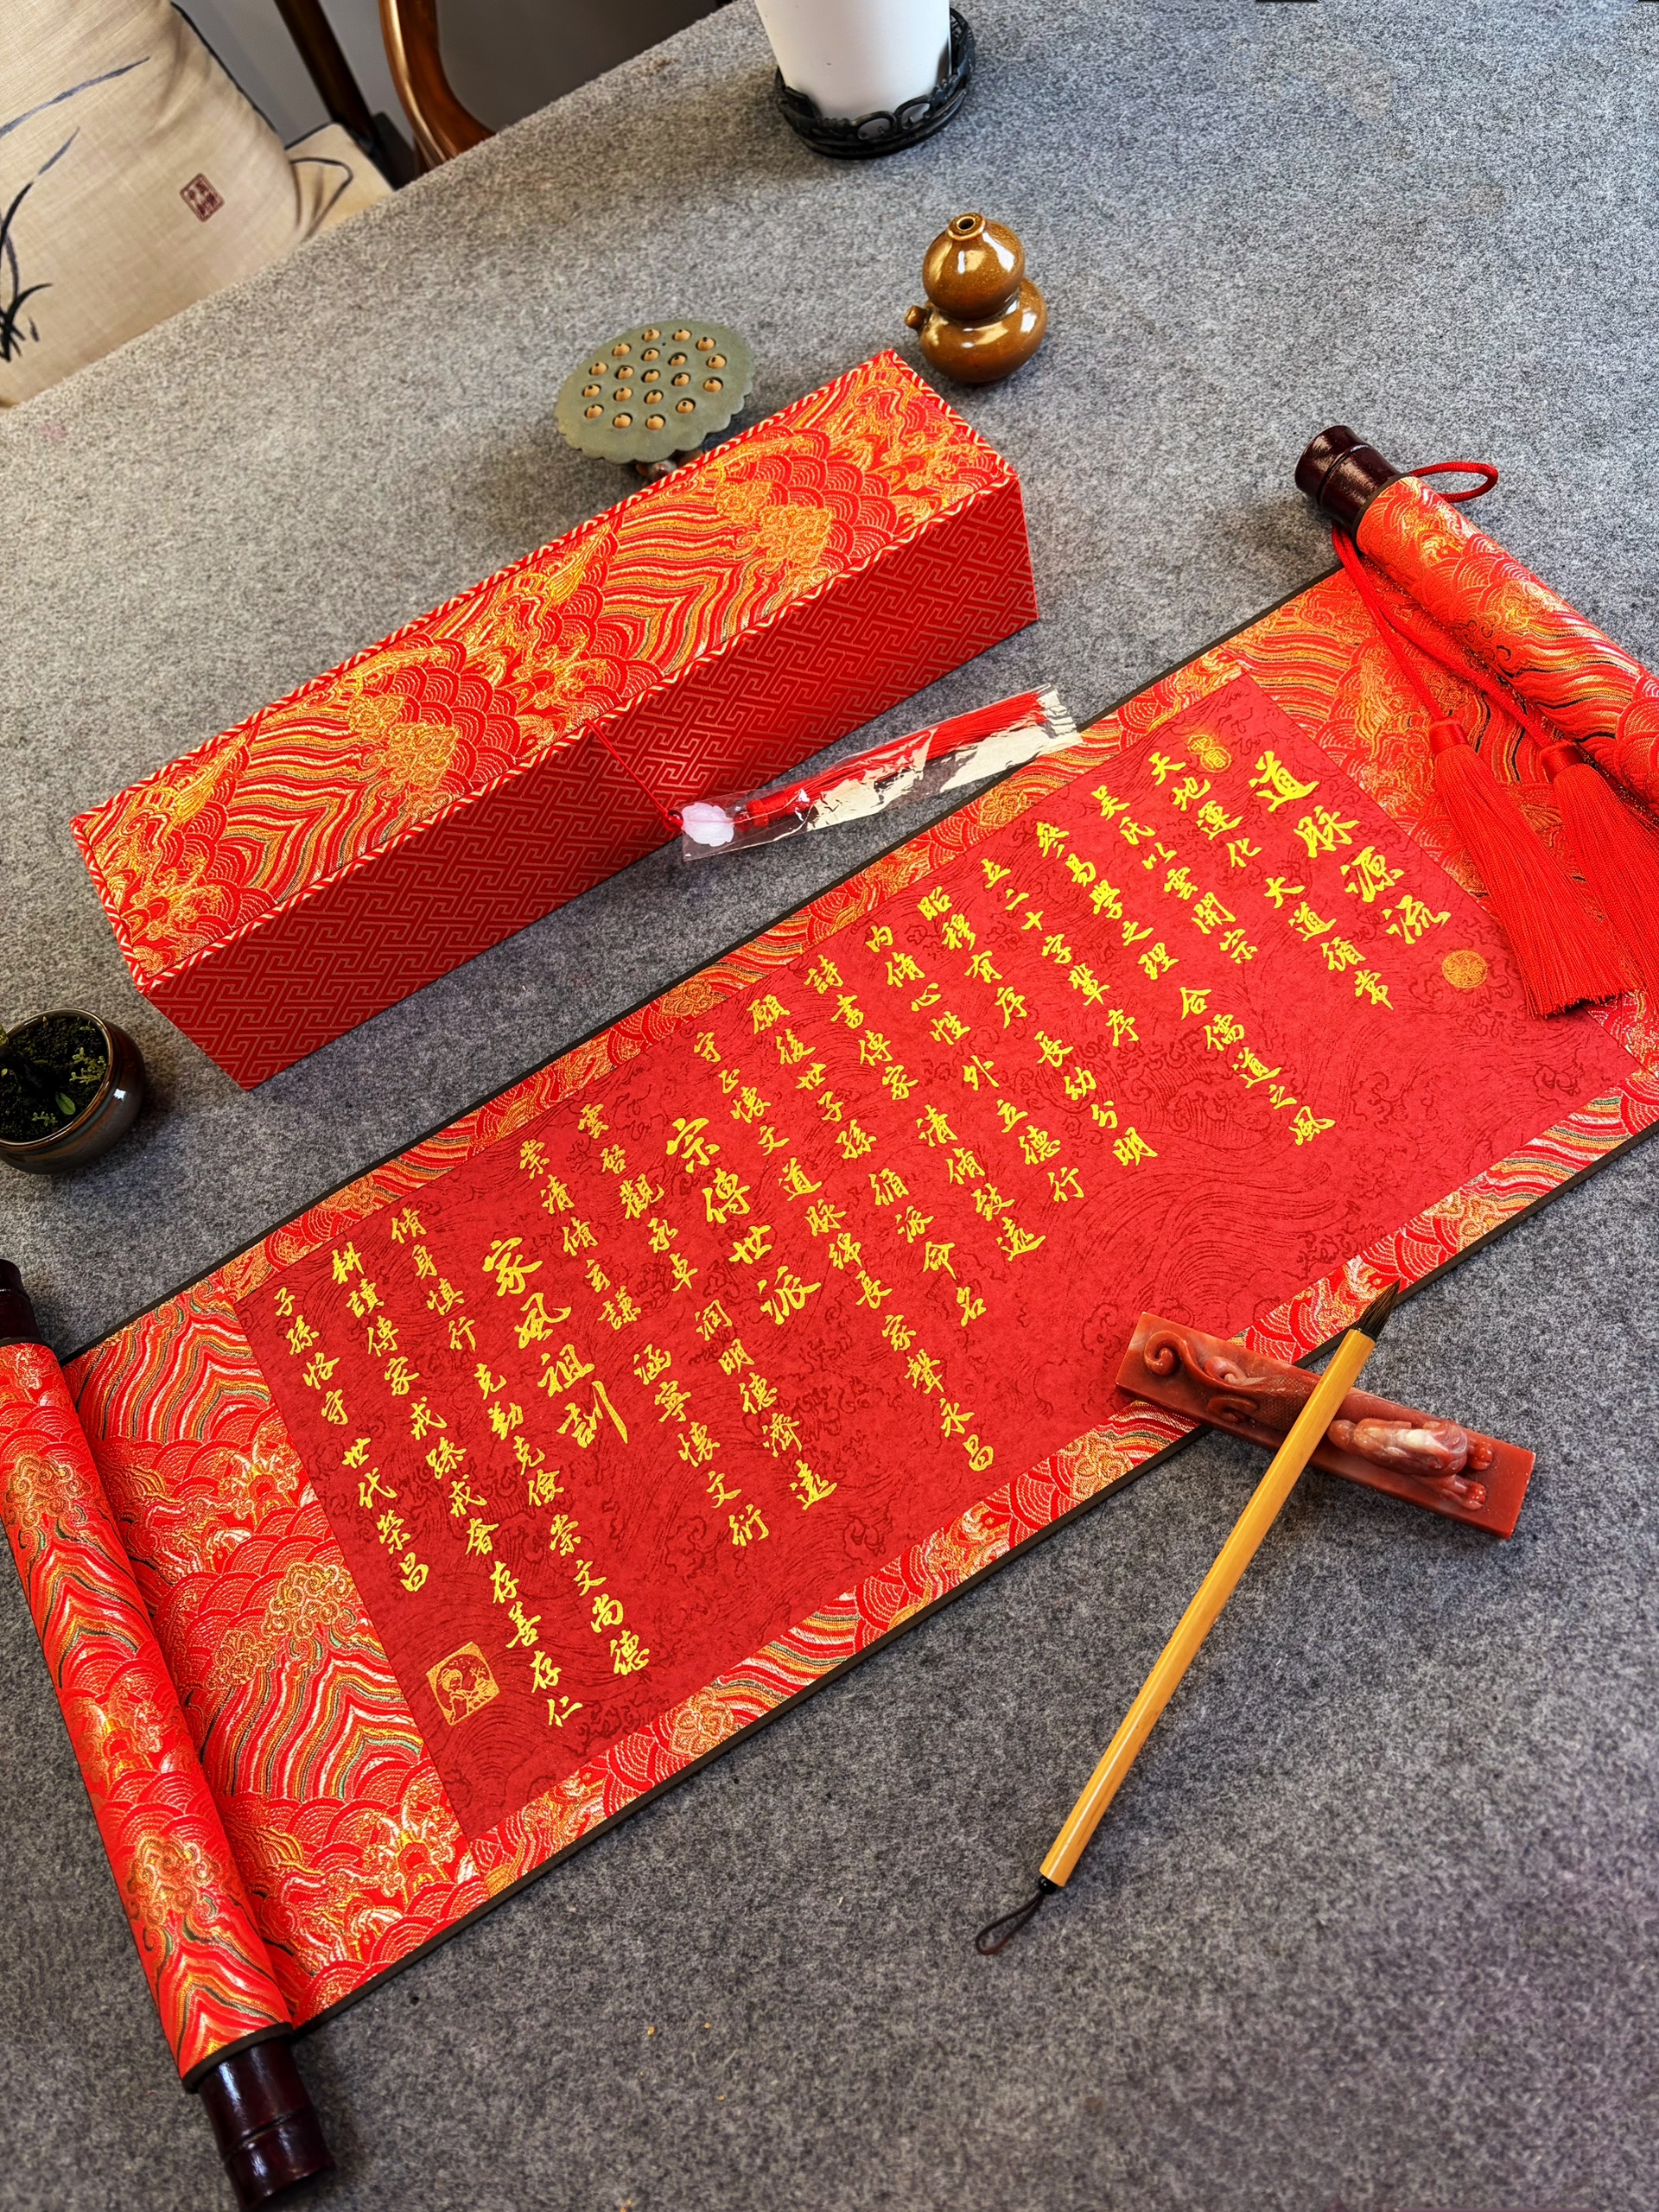 道脈源流
天地運化 大道循常
吴氏以雲開宗
叅易學之理 合儒道之風
立二十字輩序
昭穆有序 長幼分明
内脩心性 外立德行
詩書傳家 清脩致遠
願後世子孫 循派命名
守正懷文 道脈綿長 家聲永昌
宗傳世派
雲啓觀承卓 潤明德濟遠
崇清脩玄謙 涵寧懷文衍
家風祖訓
脩身慎行 克勤克儉 崇文尚德
耕讀傳家 戒躁戒奢 存善存仁
子孫恪守 世代榮昌